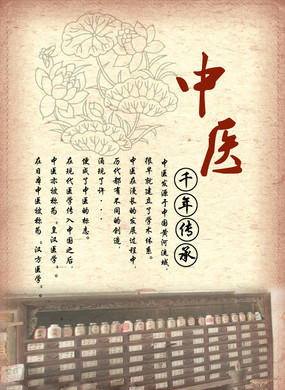 中医
千年传承
中医发源于中国黄河流域，
很早就建立了学术体系。
中医在漫长的发展过程中，
历代都有不同的创造，
涌现了许....
便成了中医的标志。
在现代医学传入中国之后，
中医亦被称为 皇汉医学。
在日本中医被称为 。汉方医学。。